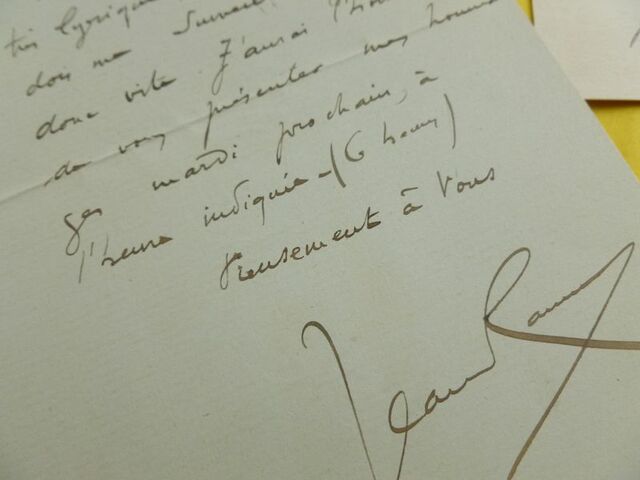 très lyrique
dois me surveil
donc vite. J'aurai l'hon
de vous présenter mes homma
ges mardi prochain, à
l'heure indiquée - (6 heures)
Pieusement à vous
Jean